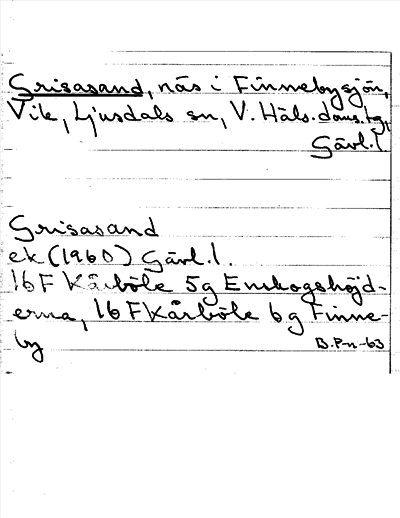 Grisasand, näs i Finnebysjön,
Vik, Ljusdals sn, V. Häls. doms.tg,
Gävl.l
Grisasand
ek (1960) Gävl.l.
16F Kårböle 5g Enskogshöjd-
erna, 16F Kårböle 6g Finne-
by
B.P-n-63